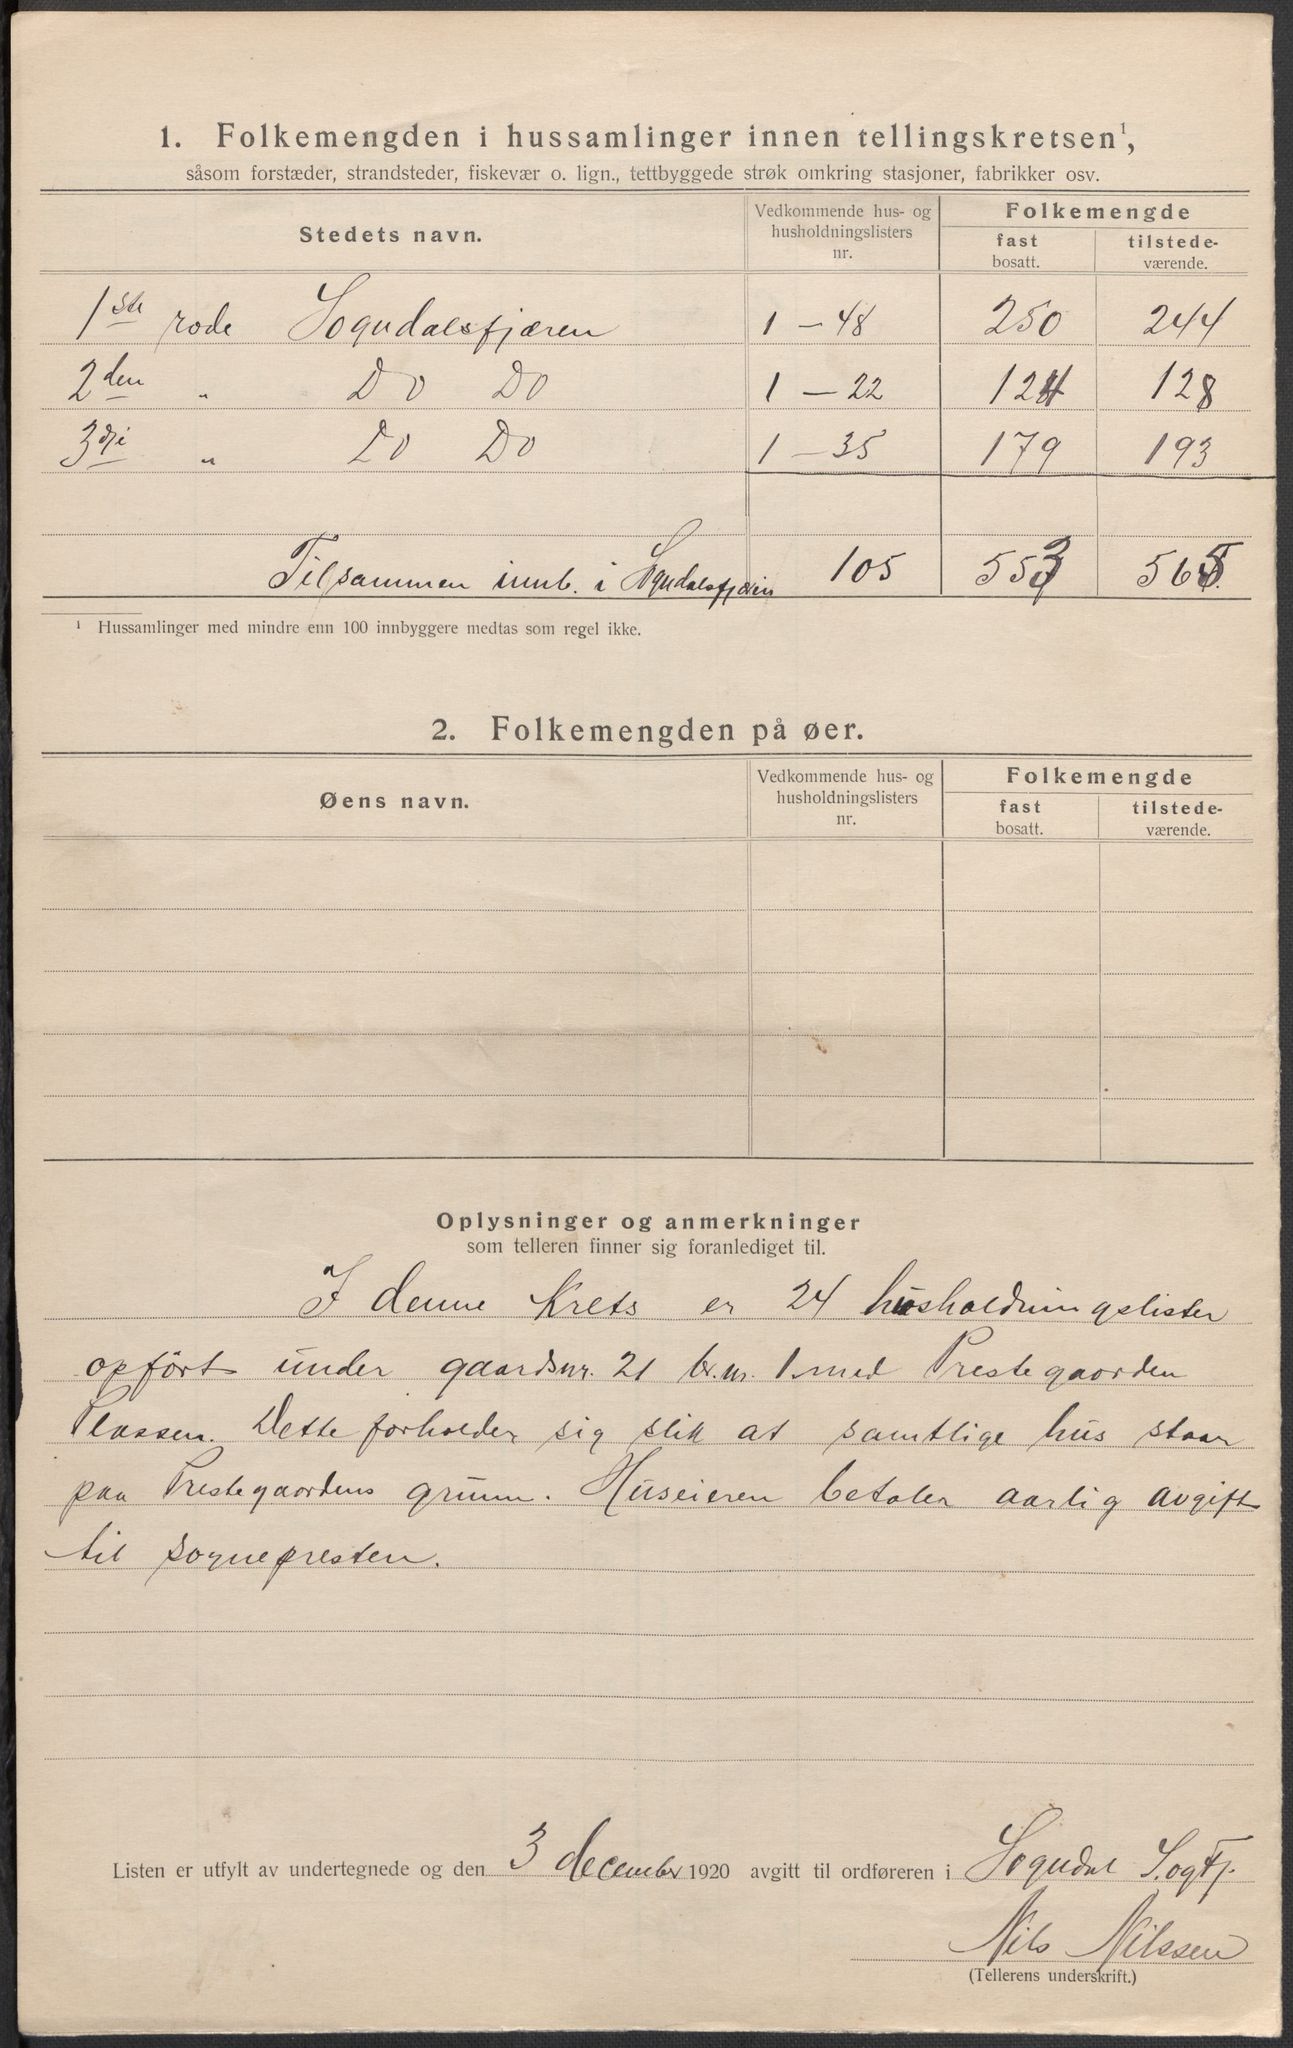 1. Folkemengden i hussamlinger innen tellingskretsen¹,
såsom forstæder, strandsteder, fiskevær o. lign., tettbyggede strøk omkring stasjoner, fabrikker osv.
Stedets navn. Vedkommende hus- og husholdningslisters nr. Folkemengde fast bosatt. tilstedeværende.
1ste rode Sogndalsfjæren 1 – 48 250 244
2den " Do Do 1 – 22 124 128
3dje " Do Do 1 – 35 179 193
Tilsammen innb. i Sogndalsfjæren 105 553 565
¹ Hussamlinger med mindre enn 100 innbyggere medtas som regel ikke.
2. Folkemengden på øer.
Øens navn. Vedkommende hus- og husholdningslisters nr. Folkemengde fast bosatt. tilstedeværende.
Oplysninger og anmerkninger
som telleren finner sig foranlediget til.
I denne Krets er 24 husholdningslister
opført under gaardsnr. 21 br.nr. 1 med Prestegaarden
Plassen. Dette forholder sig slik at samtlige hus staar
paa Prestegaardens grunn. Huseieren betaler aarlig avgift
til sognepresten.
Listen er utfylt av undertegnede og den 3 december 1920 avgitt til ordføreren i Sogndal Sogfj.
Nils Nilssen
(Tellerens underskrift.)